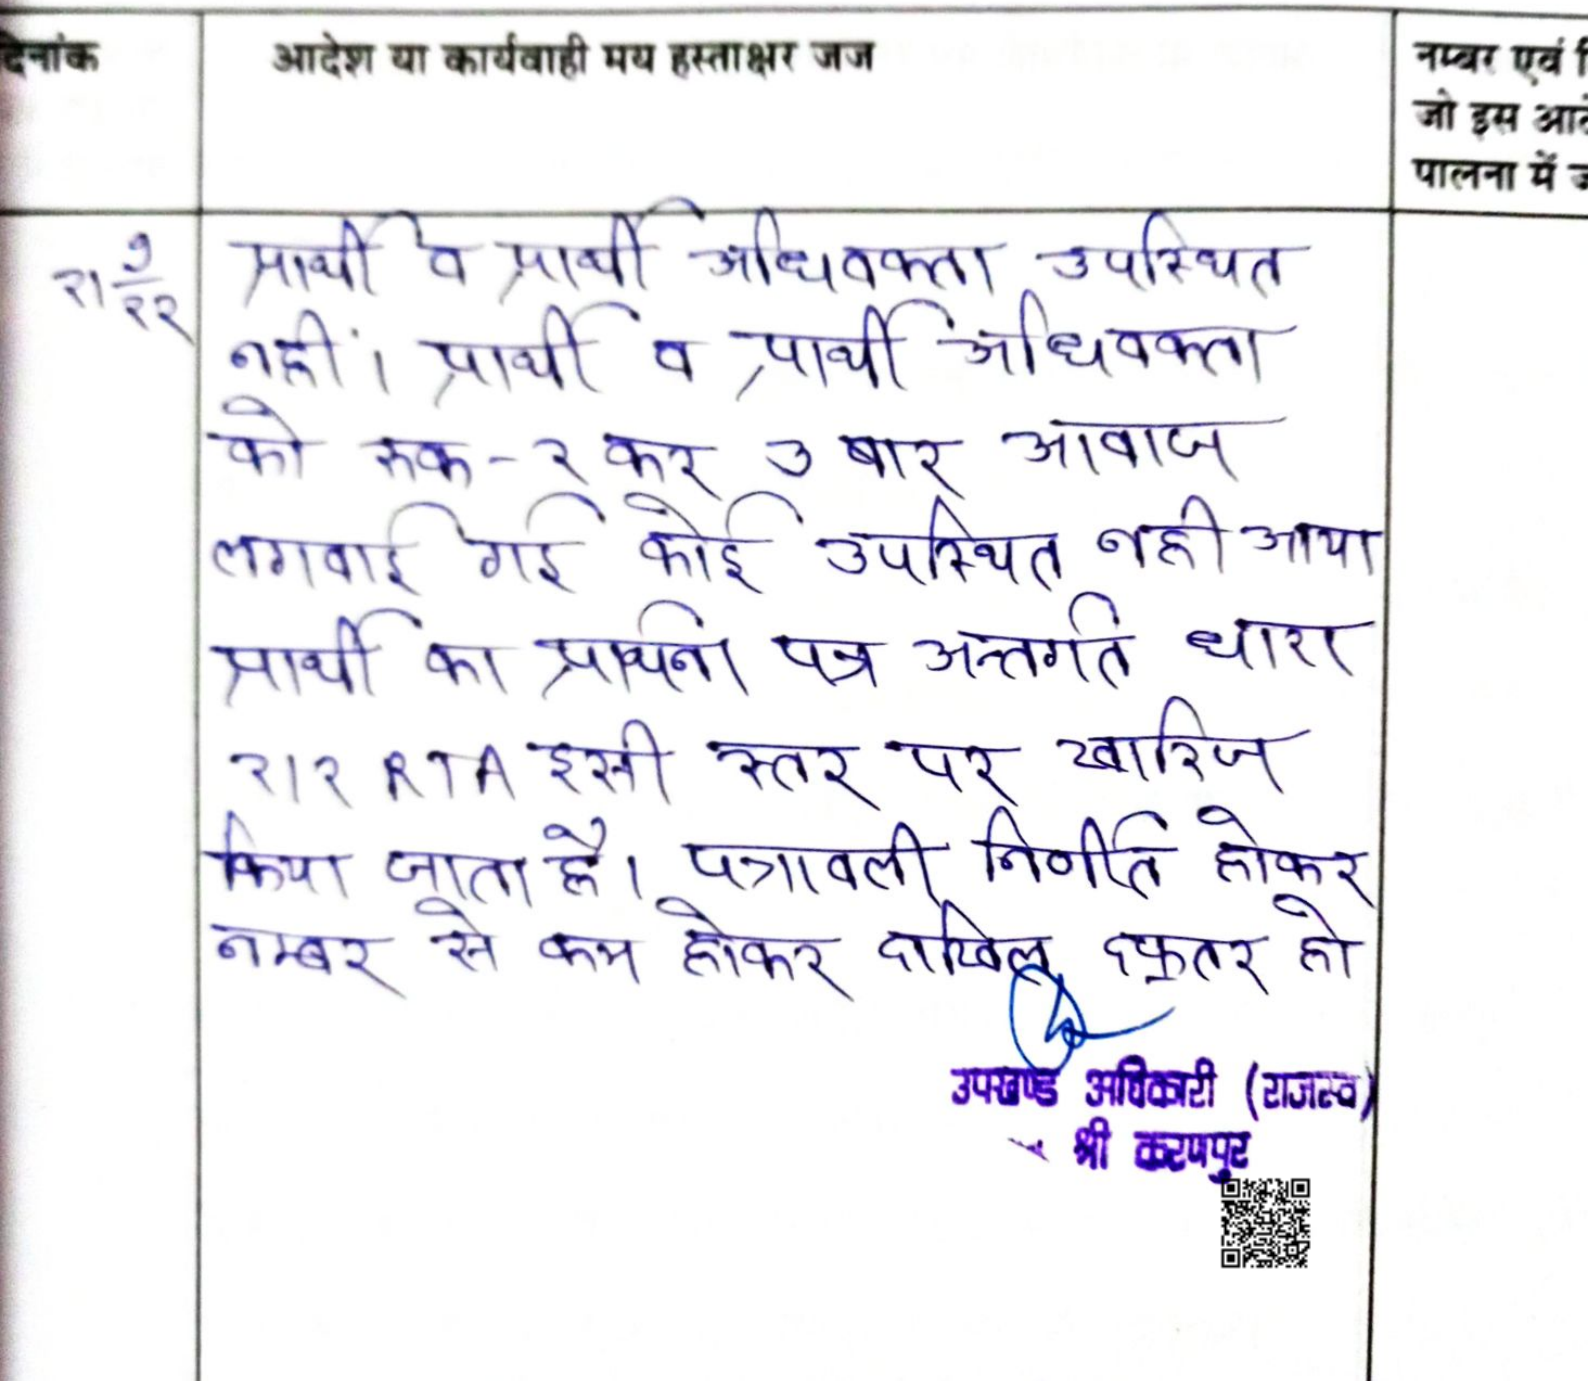 दिनांक
आदेश या कार्यवाही मय हस्ताक्षर जज
नम्बर एवं
जो इस
पालना में
प्रार्थी व प्रार्थी अधिवक्ता उपस्थित
नहीं। प्रार्थी व प्रार्थी अधिवक्ता
को रुक-२ कर ३ बार आवाज
लगवाई गई कोई उपस्थित नही आया
प्रार्थी का प्रार्थना पत्र अन्तर्गत धारा
२१२ RTA इसी स्तर पर खारिज
किया जाता है। पत्रावली निर्णीत होकर
नम्बर से कम होकर दाखिल दफ्तर हो
उपखण्ड अधिकारी (राजस्व)
श्री करणपुर